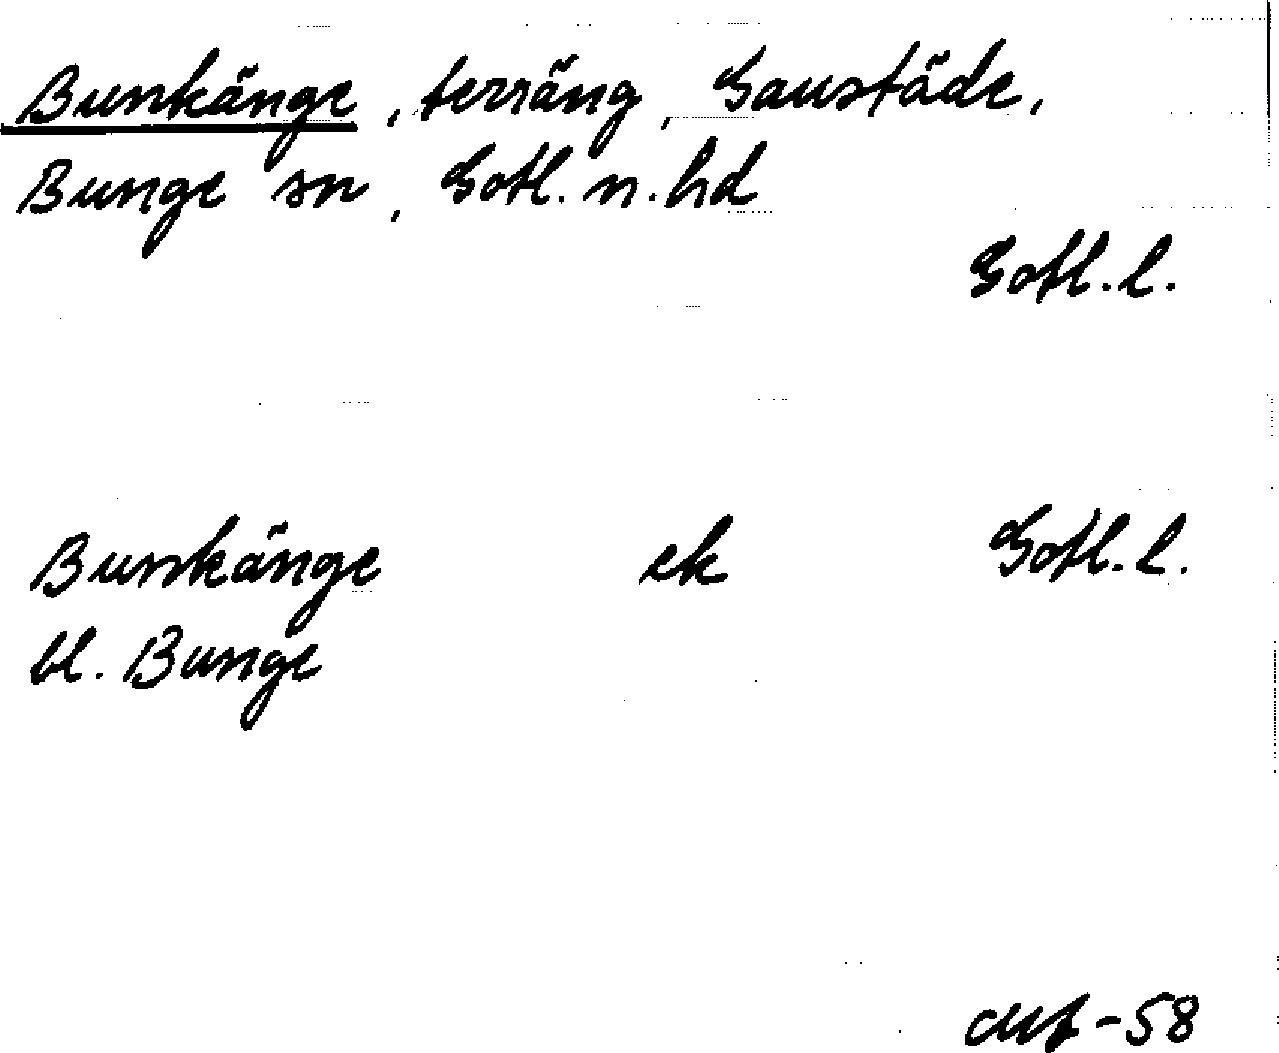 Bunkänge, terräng, Gaustäde,
Bunge sn, Gotl. n. hd
Gotl. l.
Bunkänge ek Gotl. l.
bl. Bunge
-58